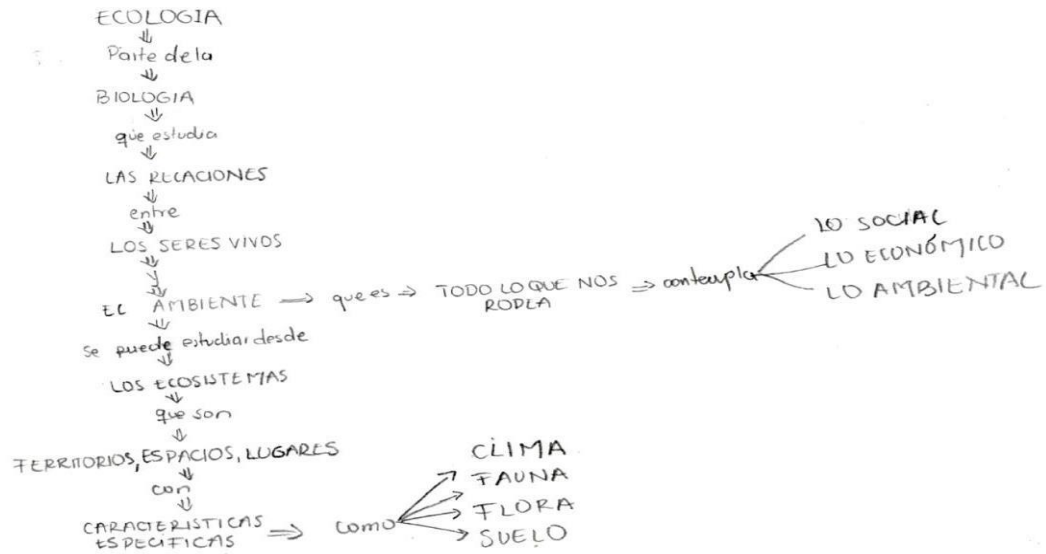 ECOLOGIA
Parte de la
BIOLOGIA
que estudia
LAS RELACIONES
entre
LOS SERES VIVOS
y
EL AMBIENTE
que es
TODO LO QUE NOS
RODEA
contempla
LO SOCIAL
LO ECONÓMICO
LO AMBIENTAL
se puede estudiar desde
LOS ECOSISTEMAS
que son
TERRITORIOS, ESPACIOS, LUGARES
con
CARACTERISTICAS
ESPECIFICAS
como
CLIMA
FAUNA
FLORA
SUELO